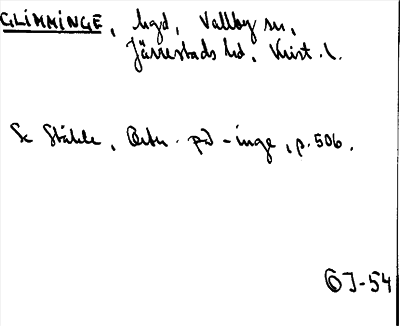 GLIMMINGE, hgd, Vallby sn,
Järrestads hd, Krist. l.
Se Ståhle, Ortn. på -inge, p. 506.
ÖJ-54